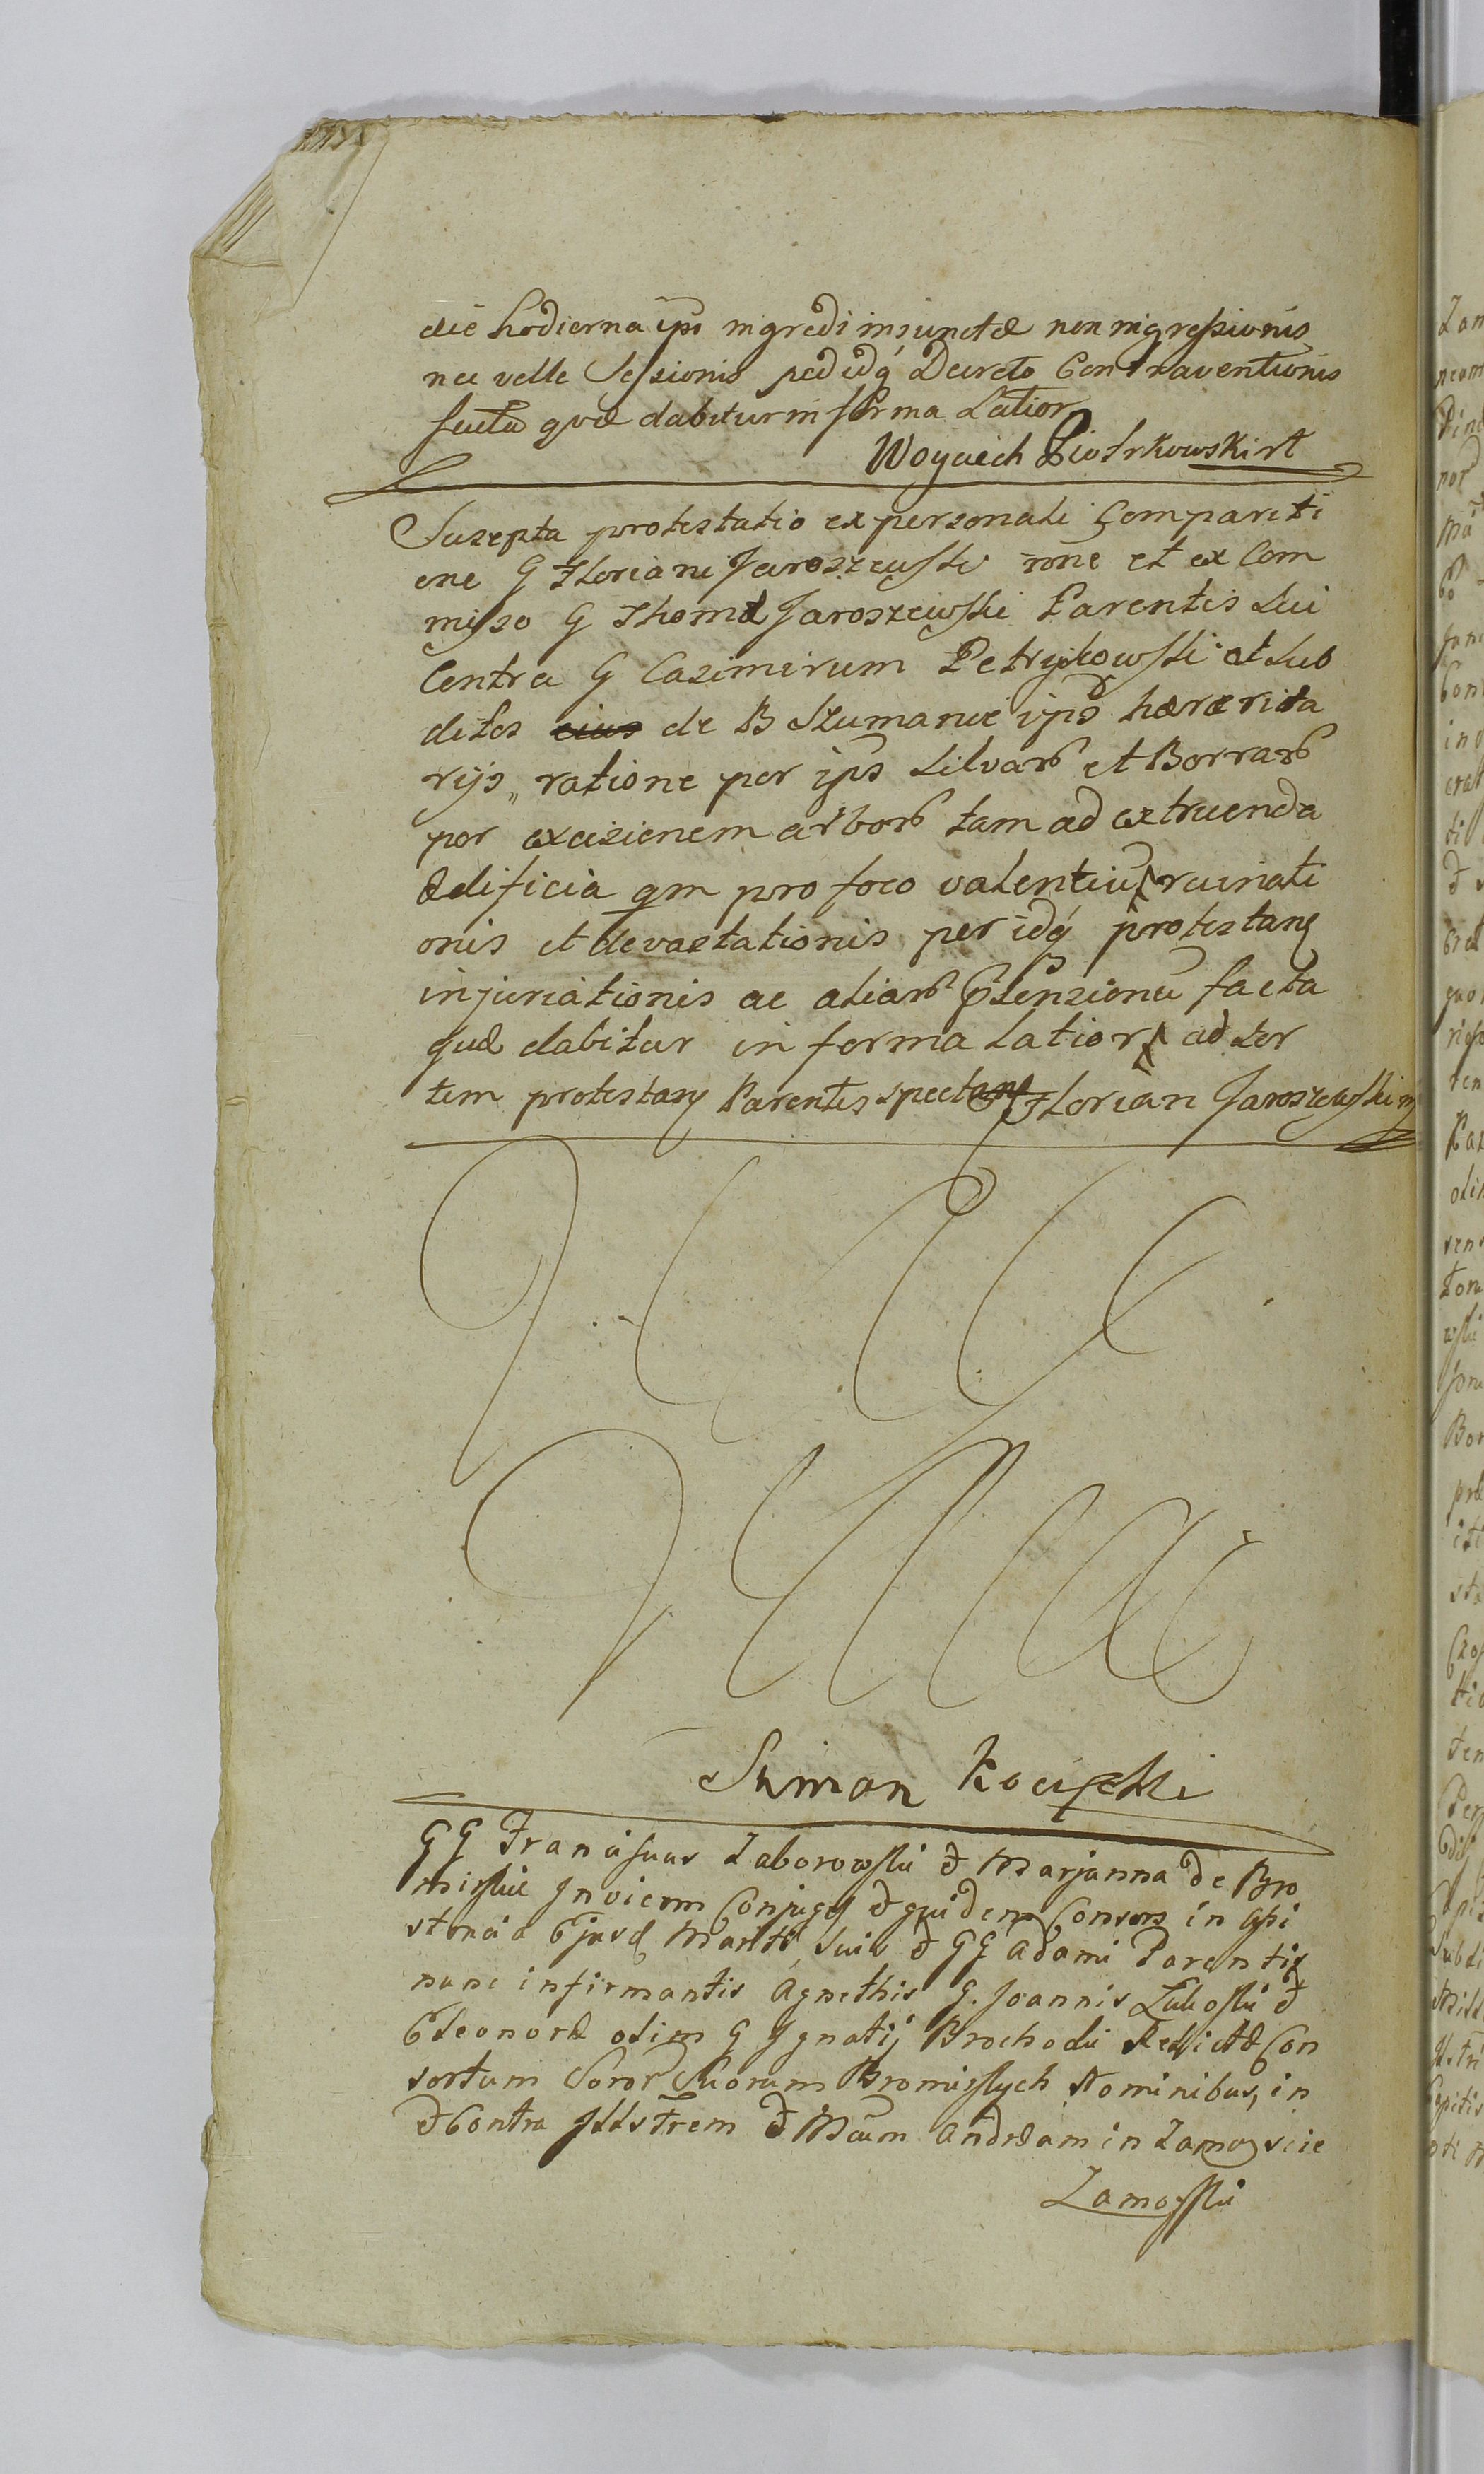 die hodierna ips ingredi injunctæ non ingressionis
nec velle Sessionis sed idq Decreto Contraventionis
facta qvæ dabitur in forma Latior
Woyciech Piotrkowski rt
Suscepta protestatio ex personali Compariti
one G Floriani Jaroszewski noie et ex Com
misso G Thomæ Jaroszewski Parentis Sui
Contra G Casimirum Petrykowski et Sub
ditos eius de B Szumanie ips hæreditа
rijs, ratione per ips Silvar et Borrar
per excisionem arbor tam ad extruenda
ædificia qm pro foco valentiu ruinati
onis et devastationis per idq protestang
injuriationis ac aliar ptensionu facta
quæ dabitur in forma Latior ad Sor
tem protestang Parentis spectang Florian Jaroszewski
Szimon
GG Franciscus Zaborowski & Marjanna de Bro
mirskie Invicem Conjuges & quidem Consors in Assi
stencia Ejusd Mariti Sui & GG Adami Parentis
nunc infirmantis Agnethis G. Joannis &
Eleonoræ olim G Ignatij Brochocki Relictæ Con
sortum Soror Suorum Bromirskych Nominibus, in
& Contra Illstrem & Mcum Andræam in Zamoyscie
Zamoyski